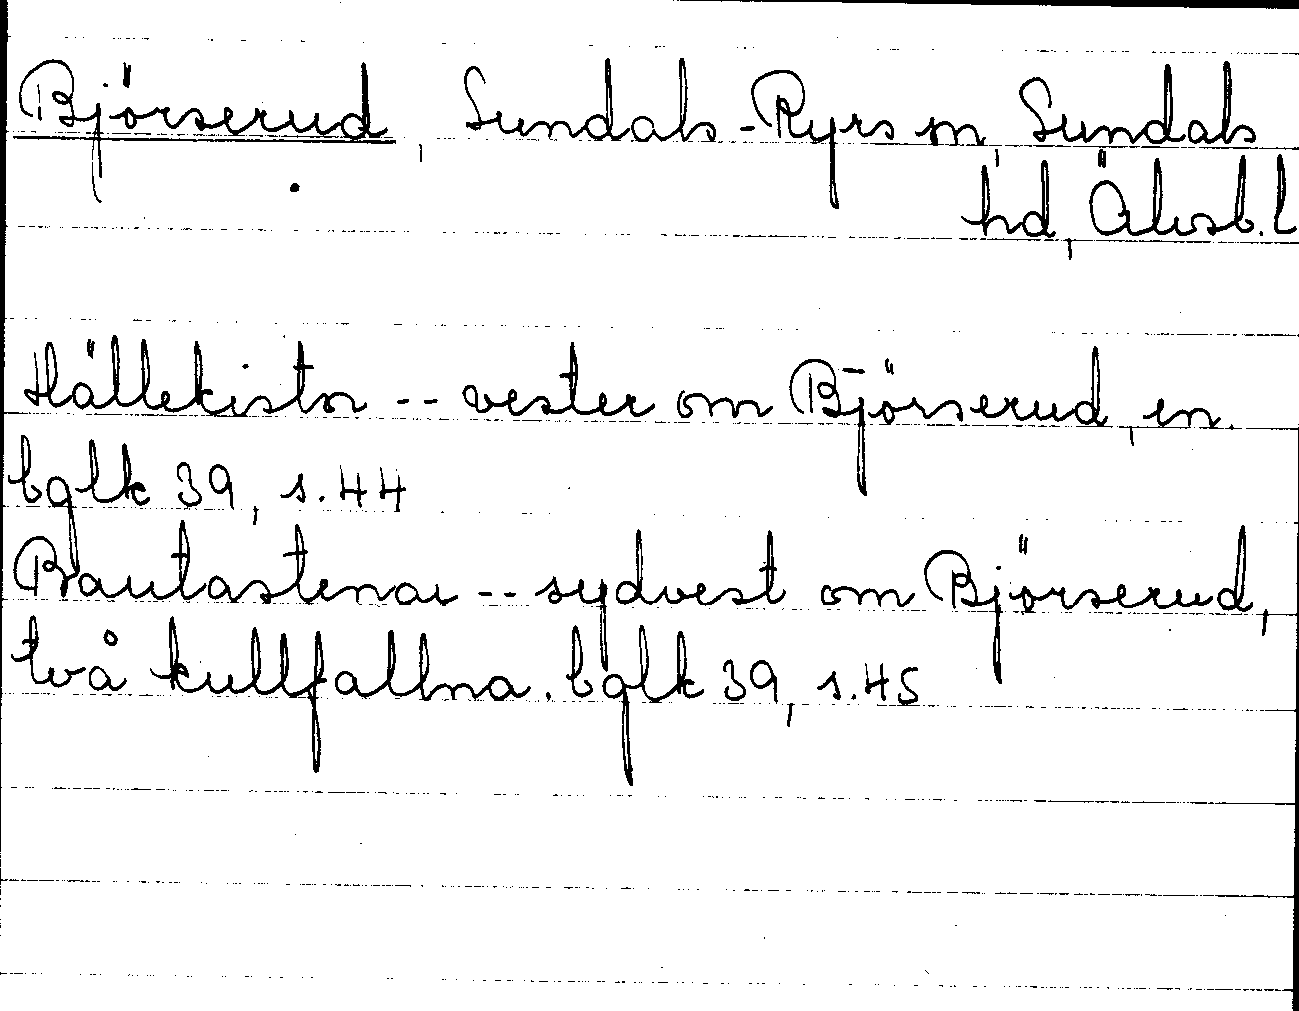 Björserud, Sundals-Ryrs sn, Sundals
hd, Älvsb. l
Hällekistor -- vester om Björserud, en.
bglk 39, s. 44
Bautastenar -- sydvest om Björserud,
två kullfallna. bglk 39, s. 45